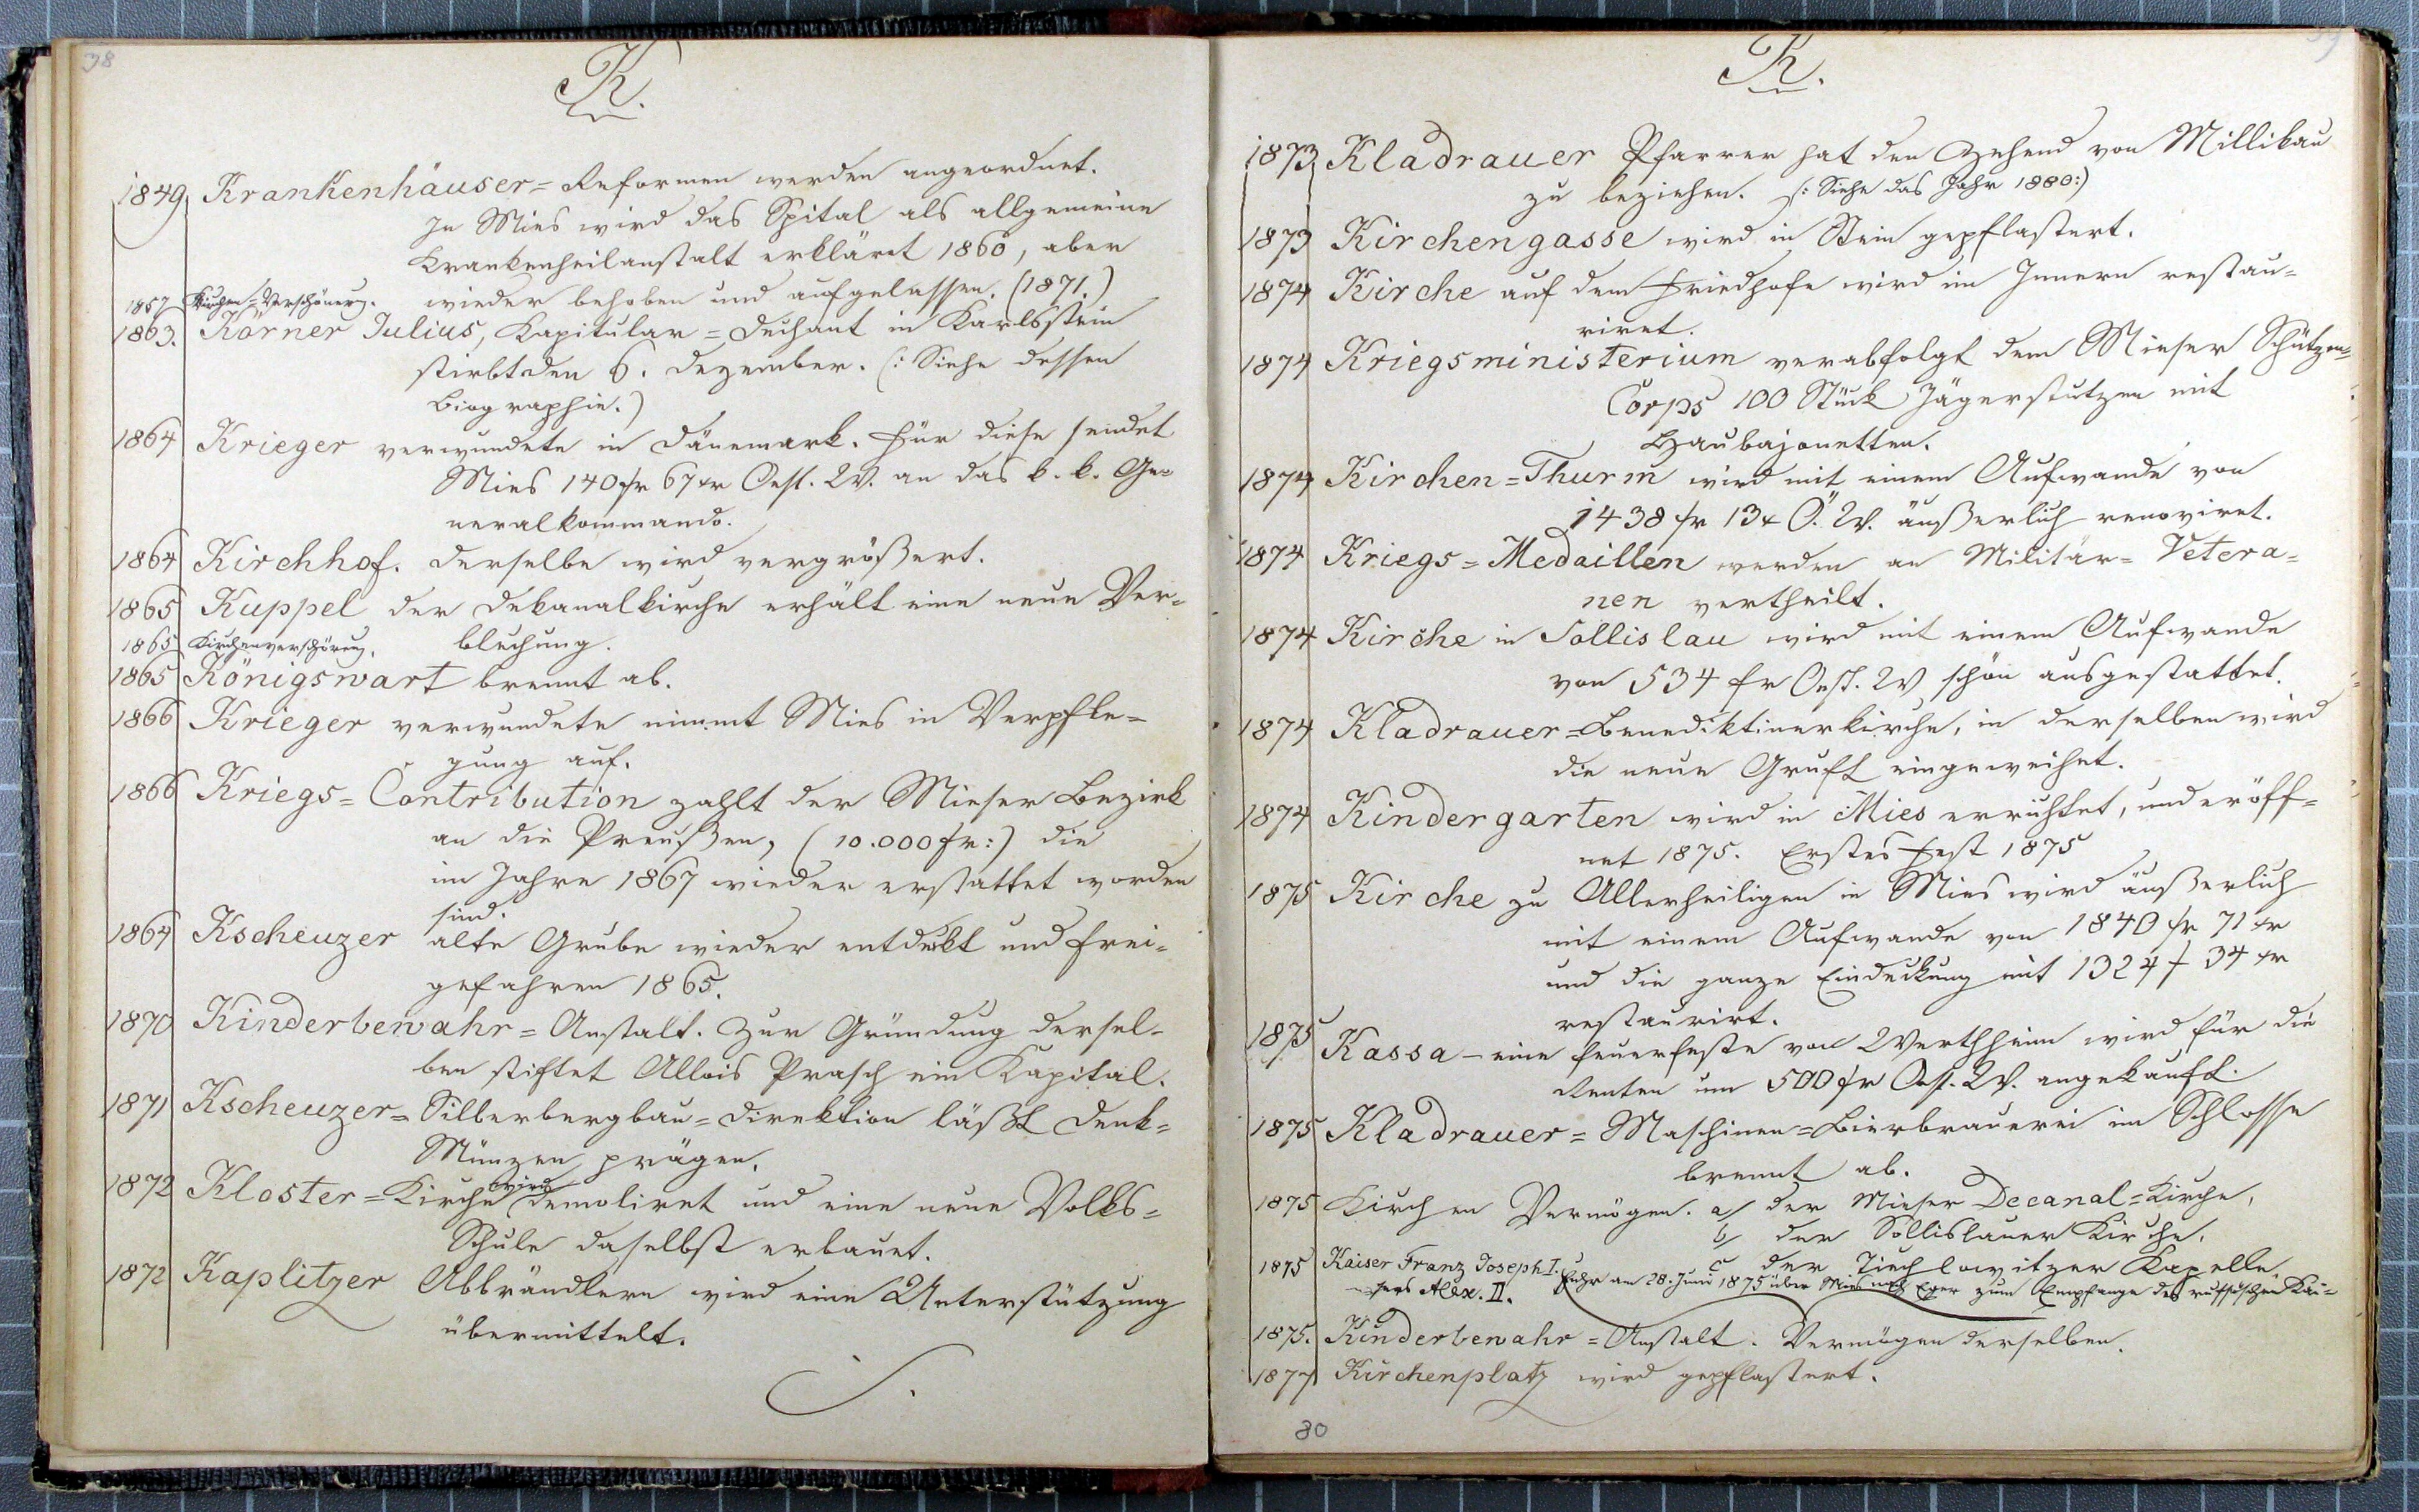 38
K.
1849 Krankenhäuser = Reformen werden angeordnet.
In Mies wird das Spital als allgemeine
Krankenheilanstalt erkläret 1860, aber
wieder behoben und aufgelassen. (1871.)
1857 Kirchen = Verschönerg.
1863. Körner Julius, Kapitular = Dechant in Karlsstein
stirbt den 6. Dezember. (: Siehe dessen
Biographie.)
1864 Krieger verwundete in Dänemark. Für diese sendet
Mies 140 fr 67 xr Oest. W. an das k. k. Ge=
neralkommando.
1864 Kirchhof. Derselbe wird vergrößert.
1865 Kuppel der Dekanalkirche erhält eine neue Ver=
blechung.
1865 Kirchenverschönerg.
1865 Königswart brennt ab.
1866 Krieger verwundete nimmt Mies in Verpfle=
gung auf.
1866 Kriegs = Contribution zahlt der Mieser Bezirk
an die Preußen, (10.000 fr:) die
im Jahre 1867 wieder erstattet worden
sind.
1864 Kscheuzer alte Grube wieder entdekt und frei=
gefahren 1865.
1870 Kinderbewahr = Anstalt. Zur Gründung dersel=
ben stiftet Allois Prasch ein Kapital.
1871 Kscheuzer = Silberbergbau = Direktion läßt Denk=
Münzen prägen.
1872 Kloster = Kirche wird demoliret und eine neue Volks=
Schule daselbst erbauet.
1872 Kaplitzer Abbrändlern wird eine Unterstützung
übermittelt.
K.
1873 Kladrauer Pfarrer hat den Zehend von Millikau
zu beziehen. (: Siehe das Jahr 1880:)
1873 Kirchengasse wird in Stein gepflastert.
1874 Kirche auf dem Friedhofe wird im Innern restau=
riret.
1874 Kriegsministerium verabfolgt dem Mieser Schützen=
Corps 100 Stück Jägerstutzen mit
Haubajonetten.
1874 Kirchen = Thurm wird mit einem Aufwande von
1438 fr 13 x Ö. W. äußerlich renoviret.
1874 Kriegs = Medaillen werden an Militär = Vetera=
nen vertheilt.
1874 Kirche in Sollislau wird mit einem Aufwande
von 534 fr Oest. W schön ausgestattet.
1874 Kladrauer = Benediktinerkirche, in derselben wird
die neue Gruft eingeweihet.
1874 Kindergarten wird in Mies errichtet, und eröff=
net 1875. Erstes Fest 1875
1875 Kirche zu Allerheiligen in Mies wird äußerlich
mit einem Aufwande von 1840 fr 71 xr
und die ganze Eindeckung mit 1324 f 34 xr
restaurirt.
1875 Kassa - eine feuerfeste von Werthheim wird für die
Renten um 500 fr Oest. W. angekauft.
1875 Kladrauer = Maschinen = Bierbrauerei im Schlosse
brennt ab.
1875 Kirchen Vermögen. a/ der Mieser Decanal = Kirche,
b/ der Sollislauer Kirche.
c der Tiechlowitzer Kapelle.
1875 Kaiser Franz Joseph I. fuhr am 28. Juni 1875 über Mies nach Eger zum Empfange des russischen Kai=
sers Alex. II.
1875. Kinderbewahr = Anstalt. Vermögen derselben.
1877 Kirchenplatz wird gepflastert.
30